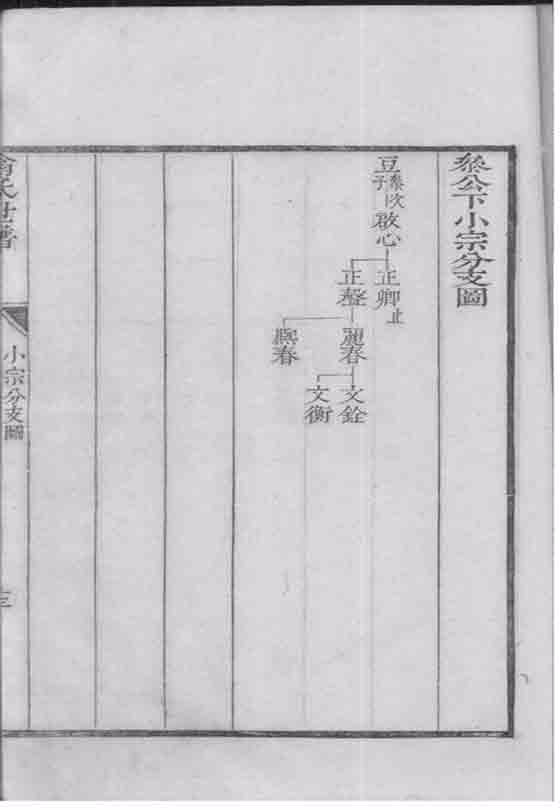 粲公下小宗分支圖
豆
粲次子
啟心
正卿
止
正磬
麗春
熙春
文銓
文衡
氏世譜
小宗分支圖
三